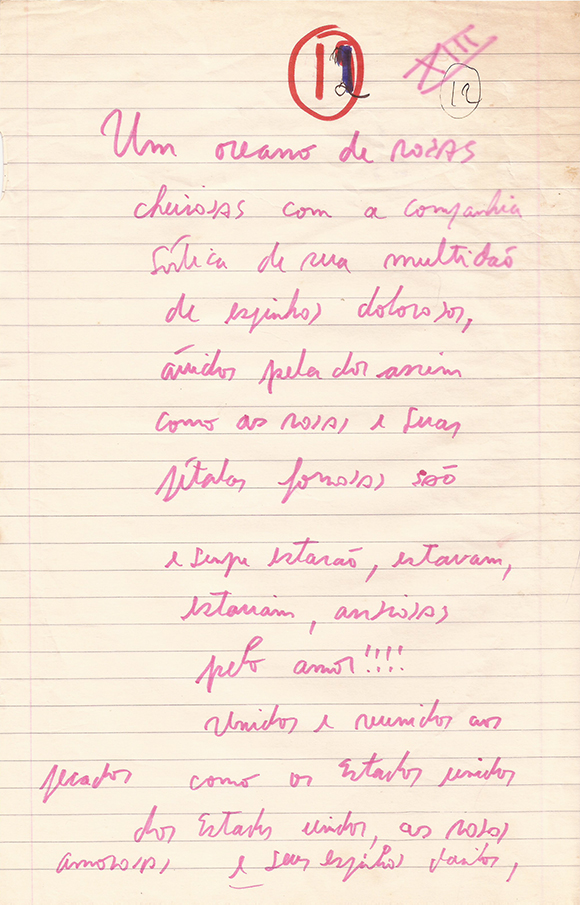 12
XIII
12
Um oceano de rosas
cheirosas com a companhia
de sua multidão
de espinhos dolorosos,
ávidos pela dor assim
como as rosas e suas
pétalas formosas são
e sempre estarão, estavam,
estariam, ansiosas
pelo amor!!!!
Unidos e reunidos aos
pecados como os Estados unidos
dos Estados unidos, as rosas
amorosas e seus espinhos